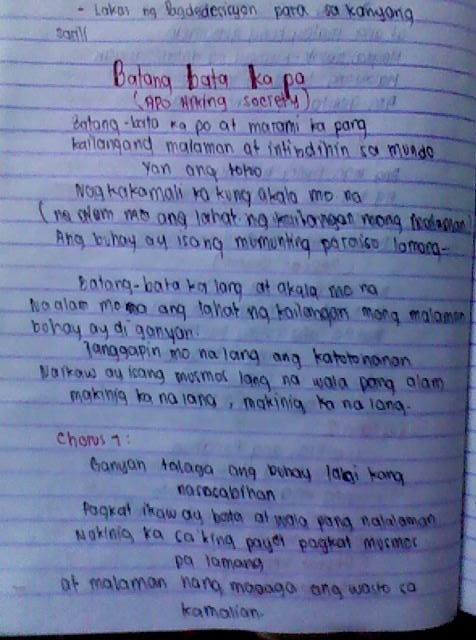 - Lakas ng Pagdedesisyon para sa kanyang
sarili
Batang bata ka pa
(APO Hiking society)
Batang-bata ka pa at marami ka pang
kailangang malaman at intindihin sa mundo
Yan ang totoo
Nagkakamali ka kung akala mo na
(na alam mo ang lahat ng kailangan mong malaman
Ang buhay ay isang mumunting paraiso lamang-
Batang-bata ka lang at akala mo na
Na alam mo na ang lahat ng kailangan mong malaman
buhay ay di ganyan.
Tanggapin mo na lang ang katotohanan
Na ikaw ay isang musmos lang na wala pang alam
makinig ka na lang, makinig ka na lang.
Chorus 1:
Ganyan talaga ang buhay lagi kang
nasasabihan
Pagkat ikaw ay bata at wala pang nalalaman
Makinig ka sa'king payo pagkat musmos
pa lamang
at malaman nang maaga ang wasto sa
kamalian.